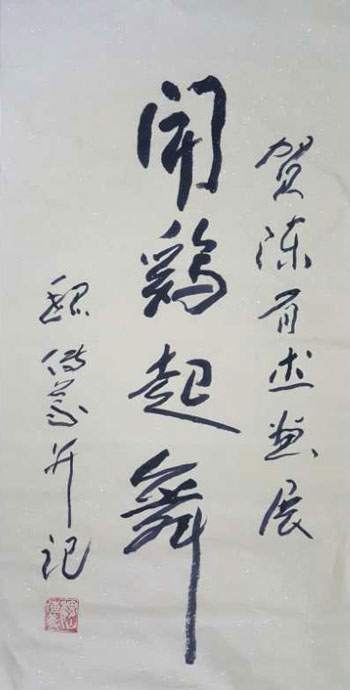 贺陈画展
闻鸡起舞
魏传义并记